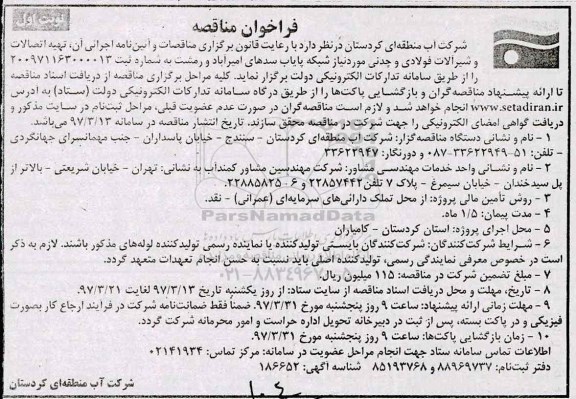 نوبت اول
فراخوان مناقصه
شرکت آب منطقه‌ای کردستان درنظر دارد با رعایت قانون برگزاری مناقصات و آیین‌نامه اجرائی آن، تهیه اتصالات
و شیرآلات فولادی و چدنی موردنیاز شبکه پایاب سدهای امیرآباد و رمشت به شماره ثبت ۲۰۰۹۷۱۱۶۳۰۰۰۰۱۳
را از طریق سامانه تدارکات الکترونیکی دولت برگزار نماید. کلیه مراحل برگزاری مناقصه از دریافت اسناد مناقصه
تا ارائه پیشنهاد مناقصه‌گران و بازگشایی پاکت‌ها را از طریق درگاه سامانه تدارکات الکترونیکی دولت (ستاد) به آدرس
www.setadiran.ir انجام خواهد شد و لازم است مناقصه‌گران در صورت عدم عضویت قبلی، مراحل ثبت‌نام در سایت مذکور و
دریافت گواهی امضای الکترونیکی را جهت شرکت در مناقصه محقق سازند. تاریخ انتشار مناقصه در سامانه ۹۷/۳/۱۳ می‌باشد.
۱ – نام و نشانی دستگاه مناقصه‌گزار: شرکت آب منطقه‌ای کردستان – سنندج – خیابان پاسداران – جنب مهمانسرای جهانگردی
– تلفن: ۵۱-۳۳۶۲۲۹۴۹-۰۸۷ و دورنگار: ۳۳۶۲۲۹۴۷
۲ – نام و نشانی واحد خدمات مهندسی مشاور: شرکت مهندسین مشاور کمنداب به نشانی: تهران – خیابان شریعتی – بالاتر از
پل سیدخندان – خیابان سیمرغ – پلاک ۷ تلفن ۲۲۸۵۷۴۴۲ و ۶-۲۲۸۸۵۸۲۵.
۳ – روش تأمین مالی پروژه: از محل تملک دارائی‌های سرمایه‌ای (عمرانی) – نقد.
۴ – مدت پیمان: ۱/۵ ماه.
۵ – محل اجرای پروژه: استان کردستان – کامیاران
۶ – شرایط شرکت‌کنندگان: شرکت‌کنندگان بایستی تولیدکننده یا نماینده رسمی تولیدکننده لوله‌های مذکور باشند. لازم به ذکر
است در خصوص معرفی نمایندگی رسمی، تولیدکننده اصلی باید نسبت به حسن انجام تعهدات متعهد گردد.
۷ – مبلغ تضمین شرکت در مناقصه: ۱۱۵ میلیون ریال.
۸ – تاریخ، مهلت و محل دریافت اسناد مناقصه از سایت ستاد: از روز یکشنبه تاریخ ۹۷/۳/۱۳ لغایت ۹۷/۳/۲۱.
۹ – مهلت زمانی ارائه پیشنهاد: ساعت ۹ روز پنجشنبه مورخ ۹۷/۳/۳۱. ضمناً فقط ضمانت‌نامه شرکت در فرآیند ارجاع کار بصورت
فیزیکی و در پاکت بسته، پس از ثبت در دبیرخانه تحویل اداره حراست و امور محرمانه شرکت گردد.
۱۰ – زمان بازگشایی پاکت‌ها: ساعت ۹ روز پنجشنبه مورخ ۹۷/۳/۳۱.
اطلاعات تماس سامانه ستاد جهت انجام مراحل عضویت در سامانه: مرکز تماس: ۰۲۱۴۱۹۳۴
دفتر ثبت‌نام: ۸۸۹۶۹۷۳۷ و ۸۵۱۹۳۷۶۸   شناسه آگهی: ۱۸۶۶۵۲
شرکت آب منطقه‌ای کردستان
ParsNamadData
۰۲۱-۸۸۳۴۹۶۷۰-۵